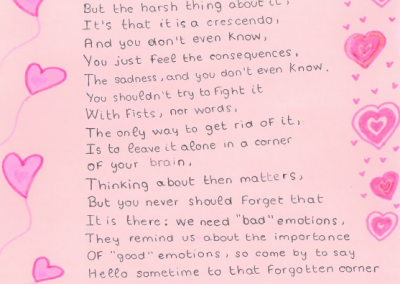 But the harsh thing about it,
It's that it is a crescendo,
And you don't even know,
You just feel the consequences,
The sadness, and you don't even know.
You shouldn't try to fight it
With fists, nor words,
The only way to get rid of it,
Is to leave it alone in a corner
of your brain,
Thinking about then matters,
But you never should forget that
It is there: we need "bad" emotions,
They remind us about the importance
OF "good" emotions, so come by to say
Hello sometime to that forgotten corner